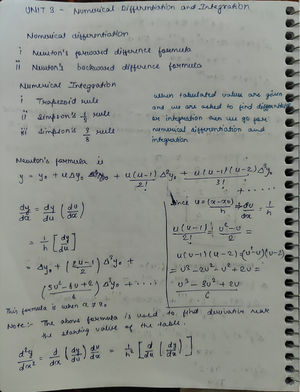 UNIT 3 - Numerical Differentiation and Integration
Numerical differentiation
i Newton's forward difference formula
ii Newton's backward difference formula
Numerical Integration
i Trapezoid rule
ii Simpson's 1/3 rule
iii Simpson's 3/8 rule
when tabulated value are given
and we are asked to find
or integration then we go for
numerical differentiation and
integration
Newton's formula is
y = y₀ + uΔy₀ + u(u-1)/2! Δ²y₀ + u(u-1)(u-2)/3! Δ³y₀
+ .....
dy/dx = dy/du (du/dx)
= 1/h [dy/du]
= Δy₀ + (2u-1)/2 Δ²y₀ +
(3u²-6u+2)/6 Δ³y₀ + .....
since u = (x-x₀)/h ⇒ du/dx = 1/h
u(u-1)/2! = u²-u/2
u(u-1)(u-2) = (u²-u)(u-2)
= u³-2u²-u²+2u =
u³-3u²+2u/6
This formula is when x ≠ x₀
Note:- The above formula is used to find derivative near
the starting value of the table.
d²y/dx² = d/dx (dy/dx) du/dx = 1/h² [d/du (dy/du)]